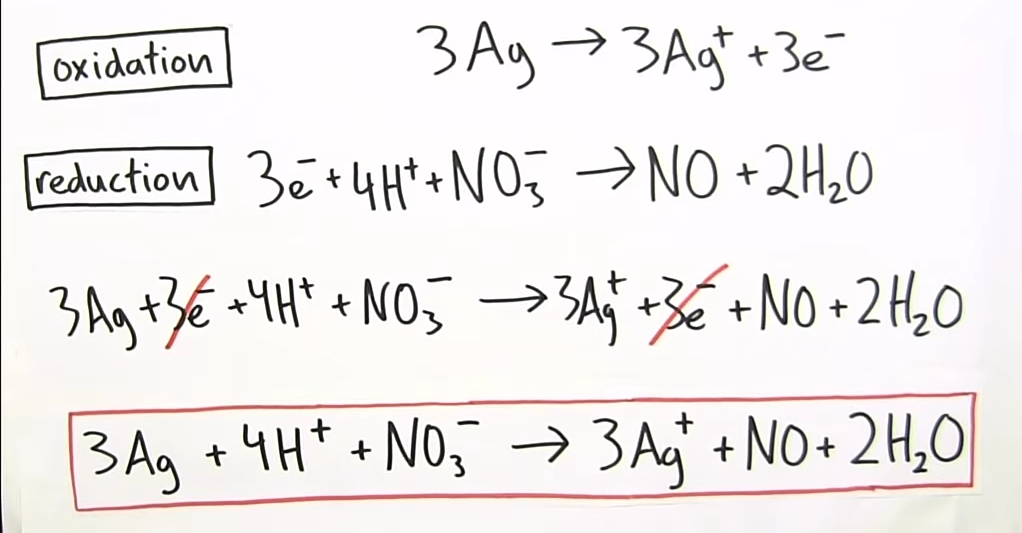 oxidation 3Ag → 3Ag⁺ + 3e⁻
reduction 3e⁻ + 4H⁺ + NO₃⁻ → NO + 2H₂O
3Ag + 3e⁻ + 4H⁺ + NO₃⁻ → 3Ag⁺ + 3e⁻ + NO + 2H₂O
3Ag + 4H⁺ + NO₃⁻ → 3Ag⁺ + NO + 2H₂O